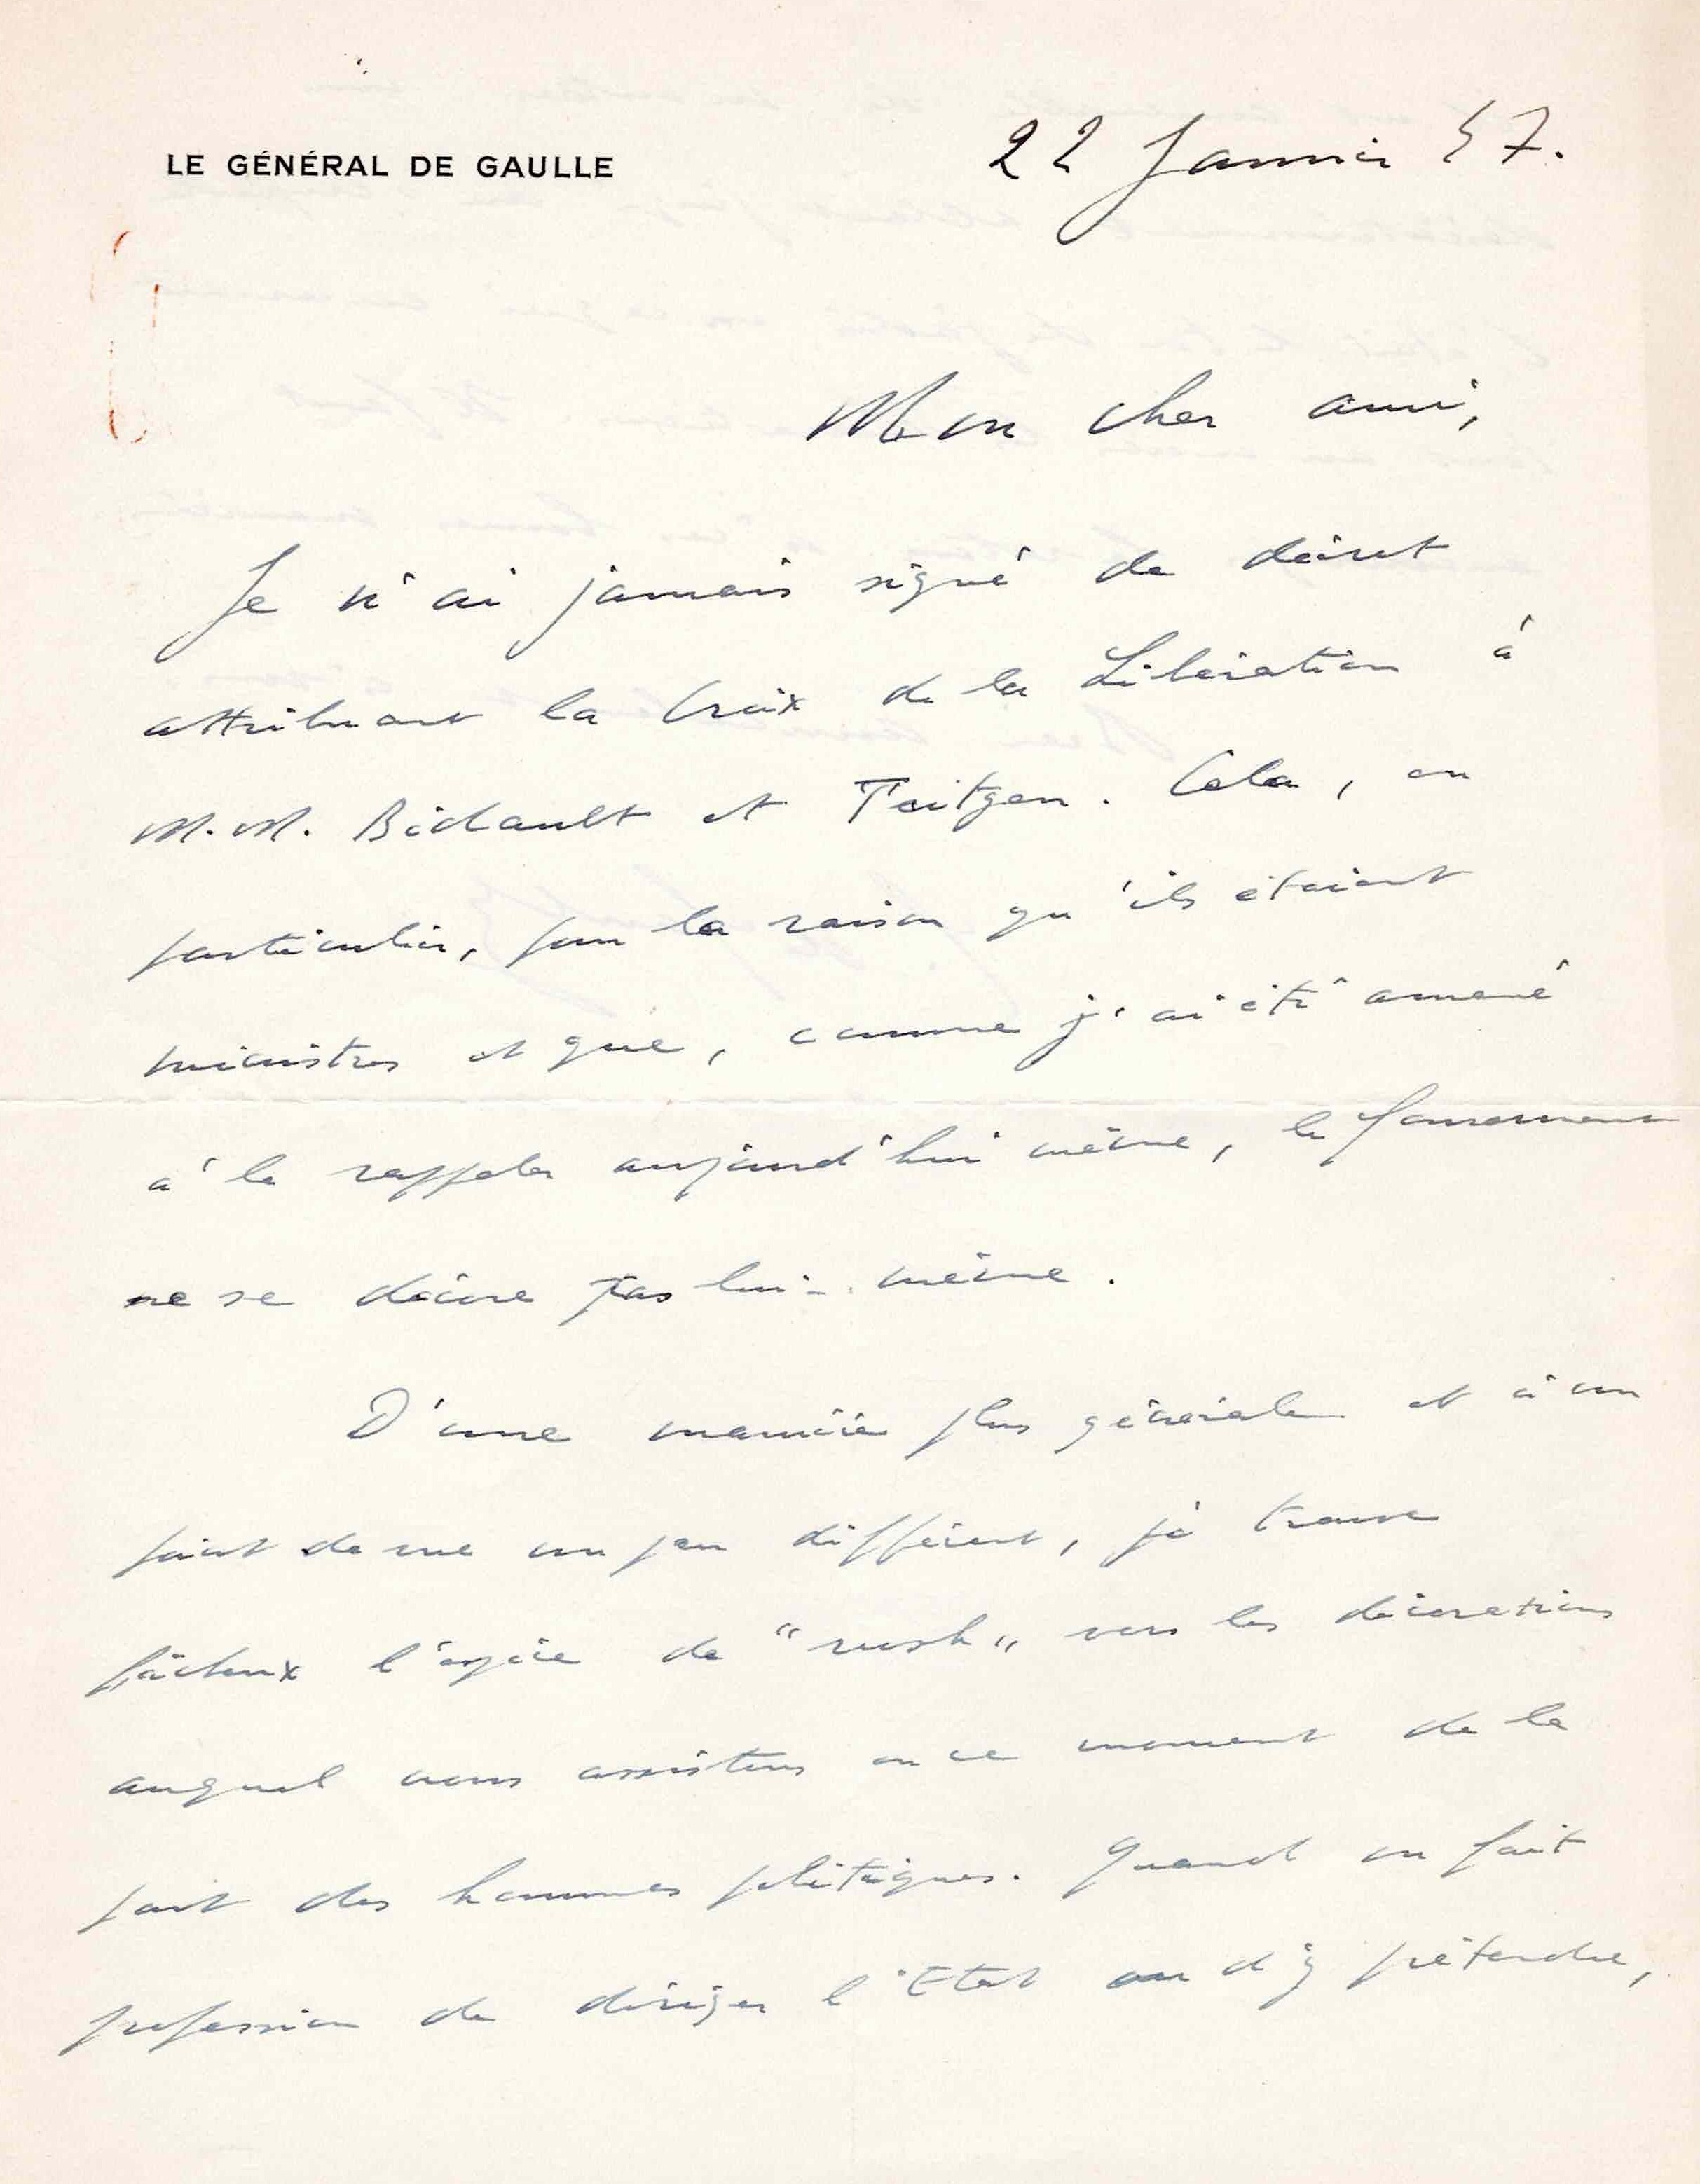 LE GÉNÉRAL DE GAULLE
22 Janvier 47.
Mon cher ami,
Je n'ai jamais signé de décret
attribuant la Croix de la Libération à
M.M. Bidault et Teitgen. Cela, en
particulier, pour la raison qu'ils étaient
ministres et que, comme j'ai été amené
à le rappeler aujourd'hui même, le gouvernement
ne se décore pas lui-même.
D'une manière plus générale et à un
point de vue un peu différent, je trouve
fâcheux l'espèce de "rush" vers les décorations
auquel nous assistons en ce moment de la
part des hommes politiques. Quand on fait
profession de diriger l'Etat ou d'y prétendre,